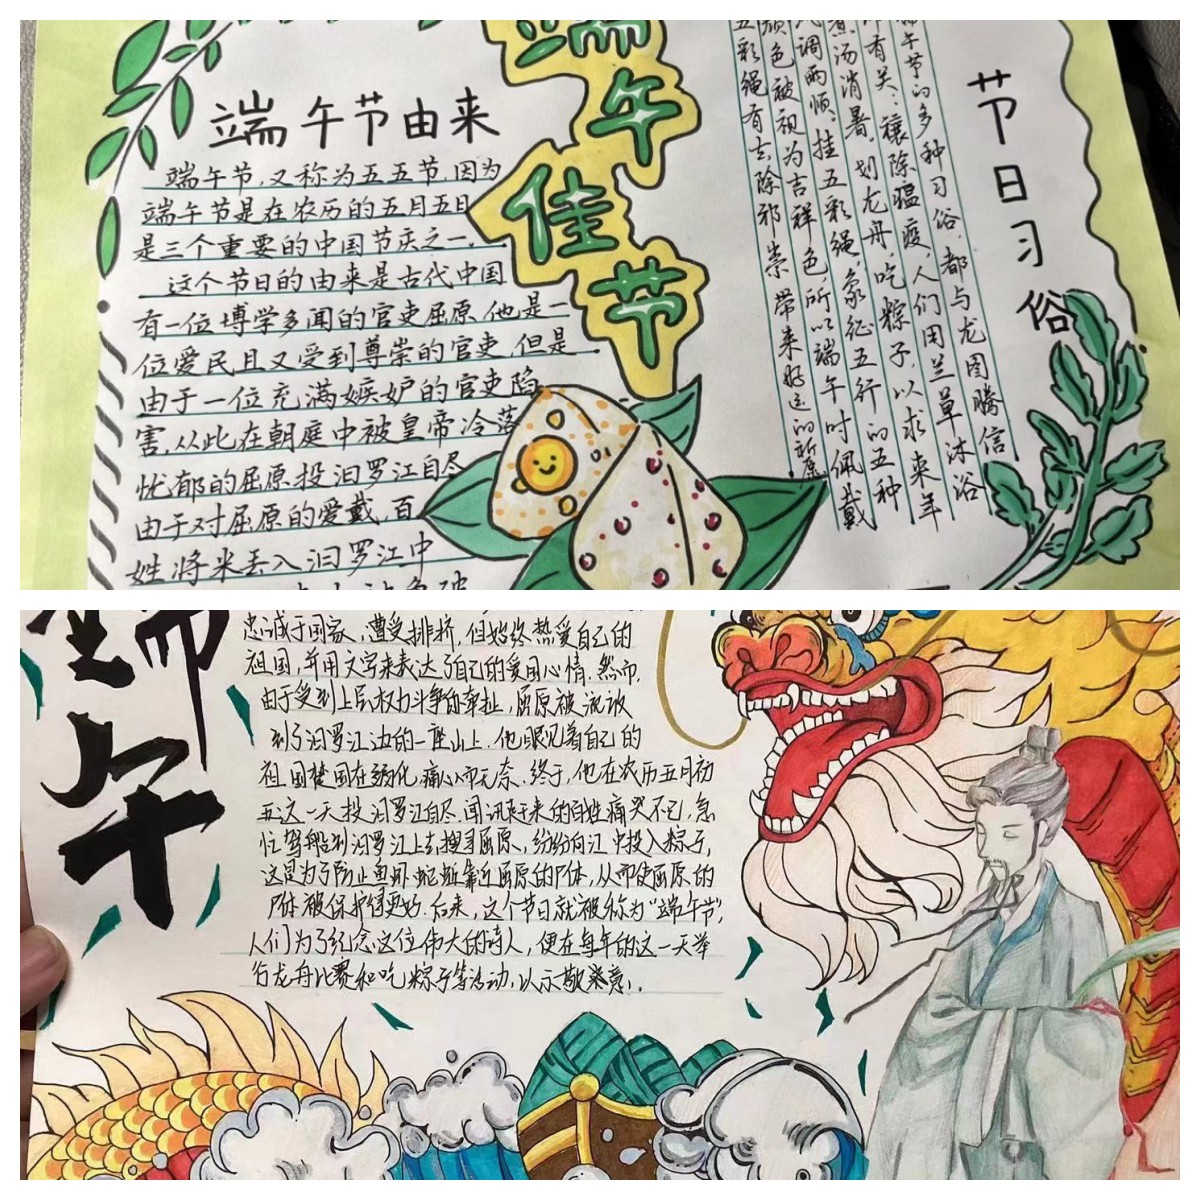 端午佳节
端午节由来
端午节,又称为五五节,因为
端午节是在农历的五月五日
是三个重要的中国节庆之一.
这个节日的由来是古代中国
有一位博学多闻的官吏屈原,他是一
位爱民且又受到尊崇的官吏,但是
由于一位充满嫉妒的官吏陷
害,从此在朝庭中被皇帝冷落
忧郁的屈原投汨罗江自尽
由于对屈原的爱戴,百
姓将米丢入汨罗江中
节日习俗
午节的多种习俗,都与龙图腾信
有关:禳除瘟疫,人们用兰草沐浴
煮汤消暑,划龙舟,吃粽子,以求来年
调雨顺,挂五彩绳,象征五行的五种
颜色被视为吉祥色,所以端午时佩戴
五彩绳有去除邪祟带来好运的
端午
忠诚于国家,遭受排挤,但始终热爱自己的
祖国,并用文字来表达了自己的爱国心情.然而,
由于受到上层权力斗争的牵扯,屈原被流放
到了汨罗江边的一座山上.他眼见着自己的
祖国楚国在弱化,痛心而无奈.终于,他在农历五月初
五这一天投汨罗江自尽.闻讯赶来的百姓痛哭不已,急
忙驾船到汨罗江上去搜寻屈原,纷纷向江中投入粽子,
这是为了防止鱼虾蛇蚯靠近屈原的尸体,从而使屈原的
尸体被保护得更好.后来,这个节日就被称为"端午节",
人们为了纪念这位伟大的诗人,便在每年的这一天举
行龙舟比赛和吃粽子等活动,以示敬意.